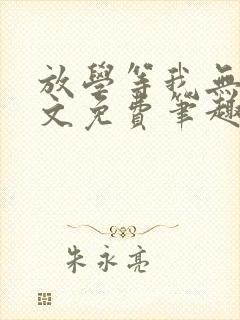 放學等我無
文免費筆趣
朱永亮